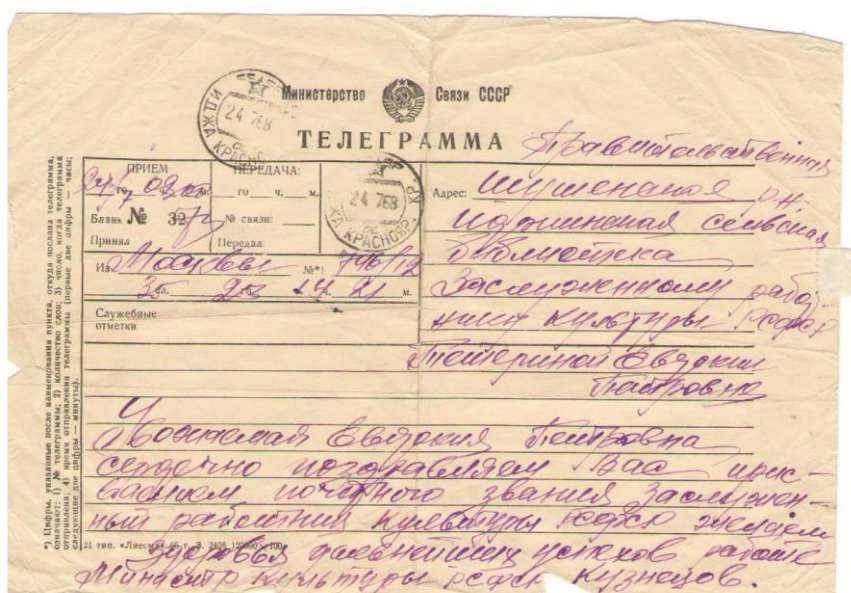 Министерство Связи СССР
ТЕЛЕГРАММА
Правительственная
ПРИЕМ:
ПЕРЕДАЧА:
го ч. м.
Бланк № 327
№ связи:
Принял
Передал:
24 768
24 768
КРАСНОЯР
Адрес: Шушенская р-н
Иджинская сельская
библиотека
Заслуженному работ-
нику культуры РСФСР
Тетериной Евдокии
Петровне
Из Москвы №*) 746/12
м.
Служебные
отметки
Уважаемая Евдокия Петровна
сердечно поздравляем Вас прис-
ваением почетного звания Заслужен-
ный работник культуры РСФСР желаем
здоровья дальнейших успехов работе
Министр культуры РСФСР Кузнецов.
*) Цифры, указанные после наименования пункта, откуда послана телеграмма,
означают: 1) № телеграммы; 2) количество слов; 3) число, когда телеграмма
отправлена; 4) время отправления телеграммы (первые две цифры — часы;
следующие две цифры — минуты).
21 тип. «Лиесма»